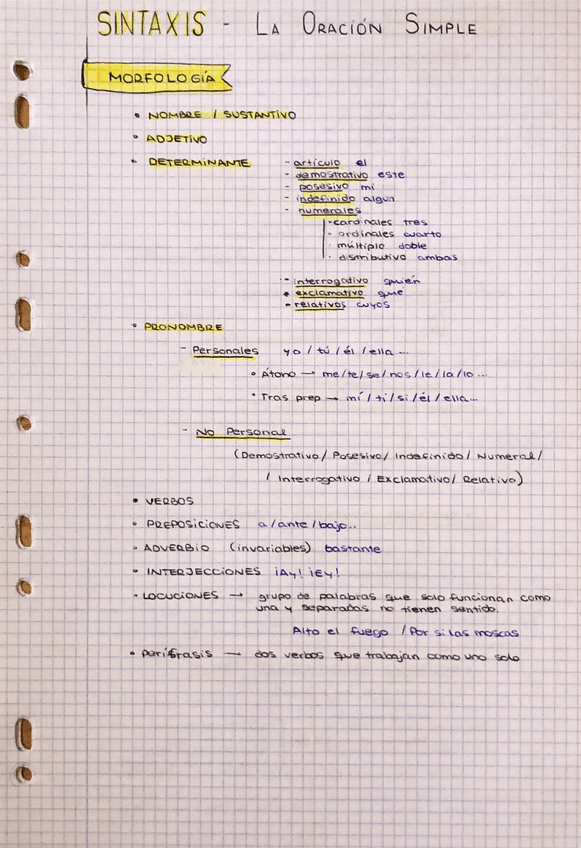 SINTAXIS - LA ORACIÓN SIMPLE
MORFOLOGÍA
• NOMBRE / SUSTANTIVO
• ADJETIVO
• DETERMINANTE - artículo el
- demostrativo este
- posesivo mi
- indefinido algun
- numerales
- cardinales tres
- ordinales cuarto
- múltiplo doble
- distributivo ambas
- interrogativo quién
• exclamativo que
- relativos cuyos
• PRONOMBRE
- Personales yo / tú / él / ella...
• Átono → me/te/se/nos/le/la/lo...
• Tras prep → mí / ti / si / él / ella...
- No Personal
(Demostrativo / Posesivo / Indefinido / Numeral /
/ Interrogativo / Exclamativo / Relativo)
• VERBOS
• PREPOSICIONES a / ante / bajo..
• ADVERBIO (invariables) bastante
• INTERJECCIONES ¡Ay! ¡Ey!
• LOCUCIONES → grupo de palabras que solo funcionan como
una y separadas no tienen sentido.
Alto el fuego / Por si las moscas
• Perífrasis — dos verbos que trabajan como uno solo